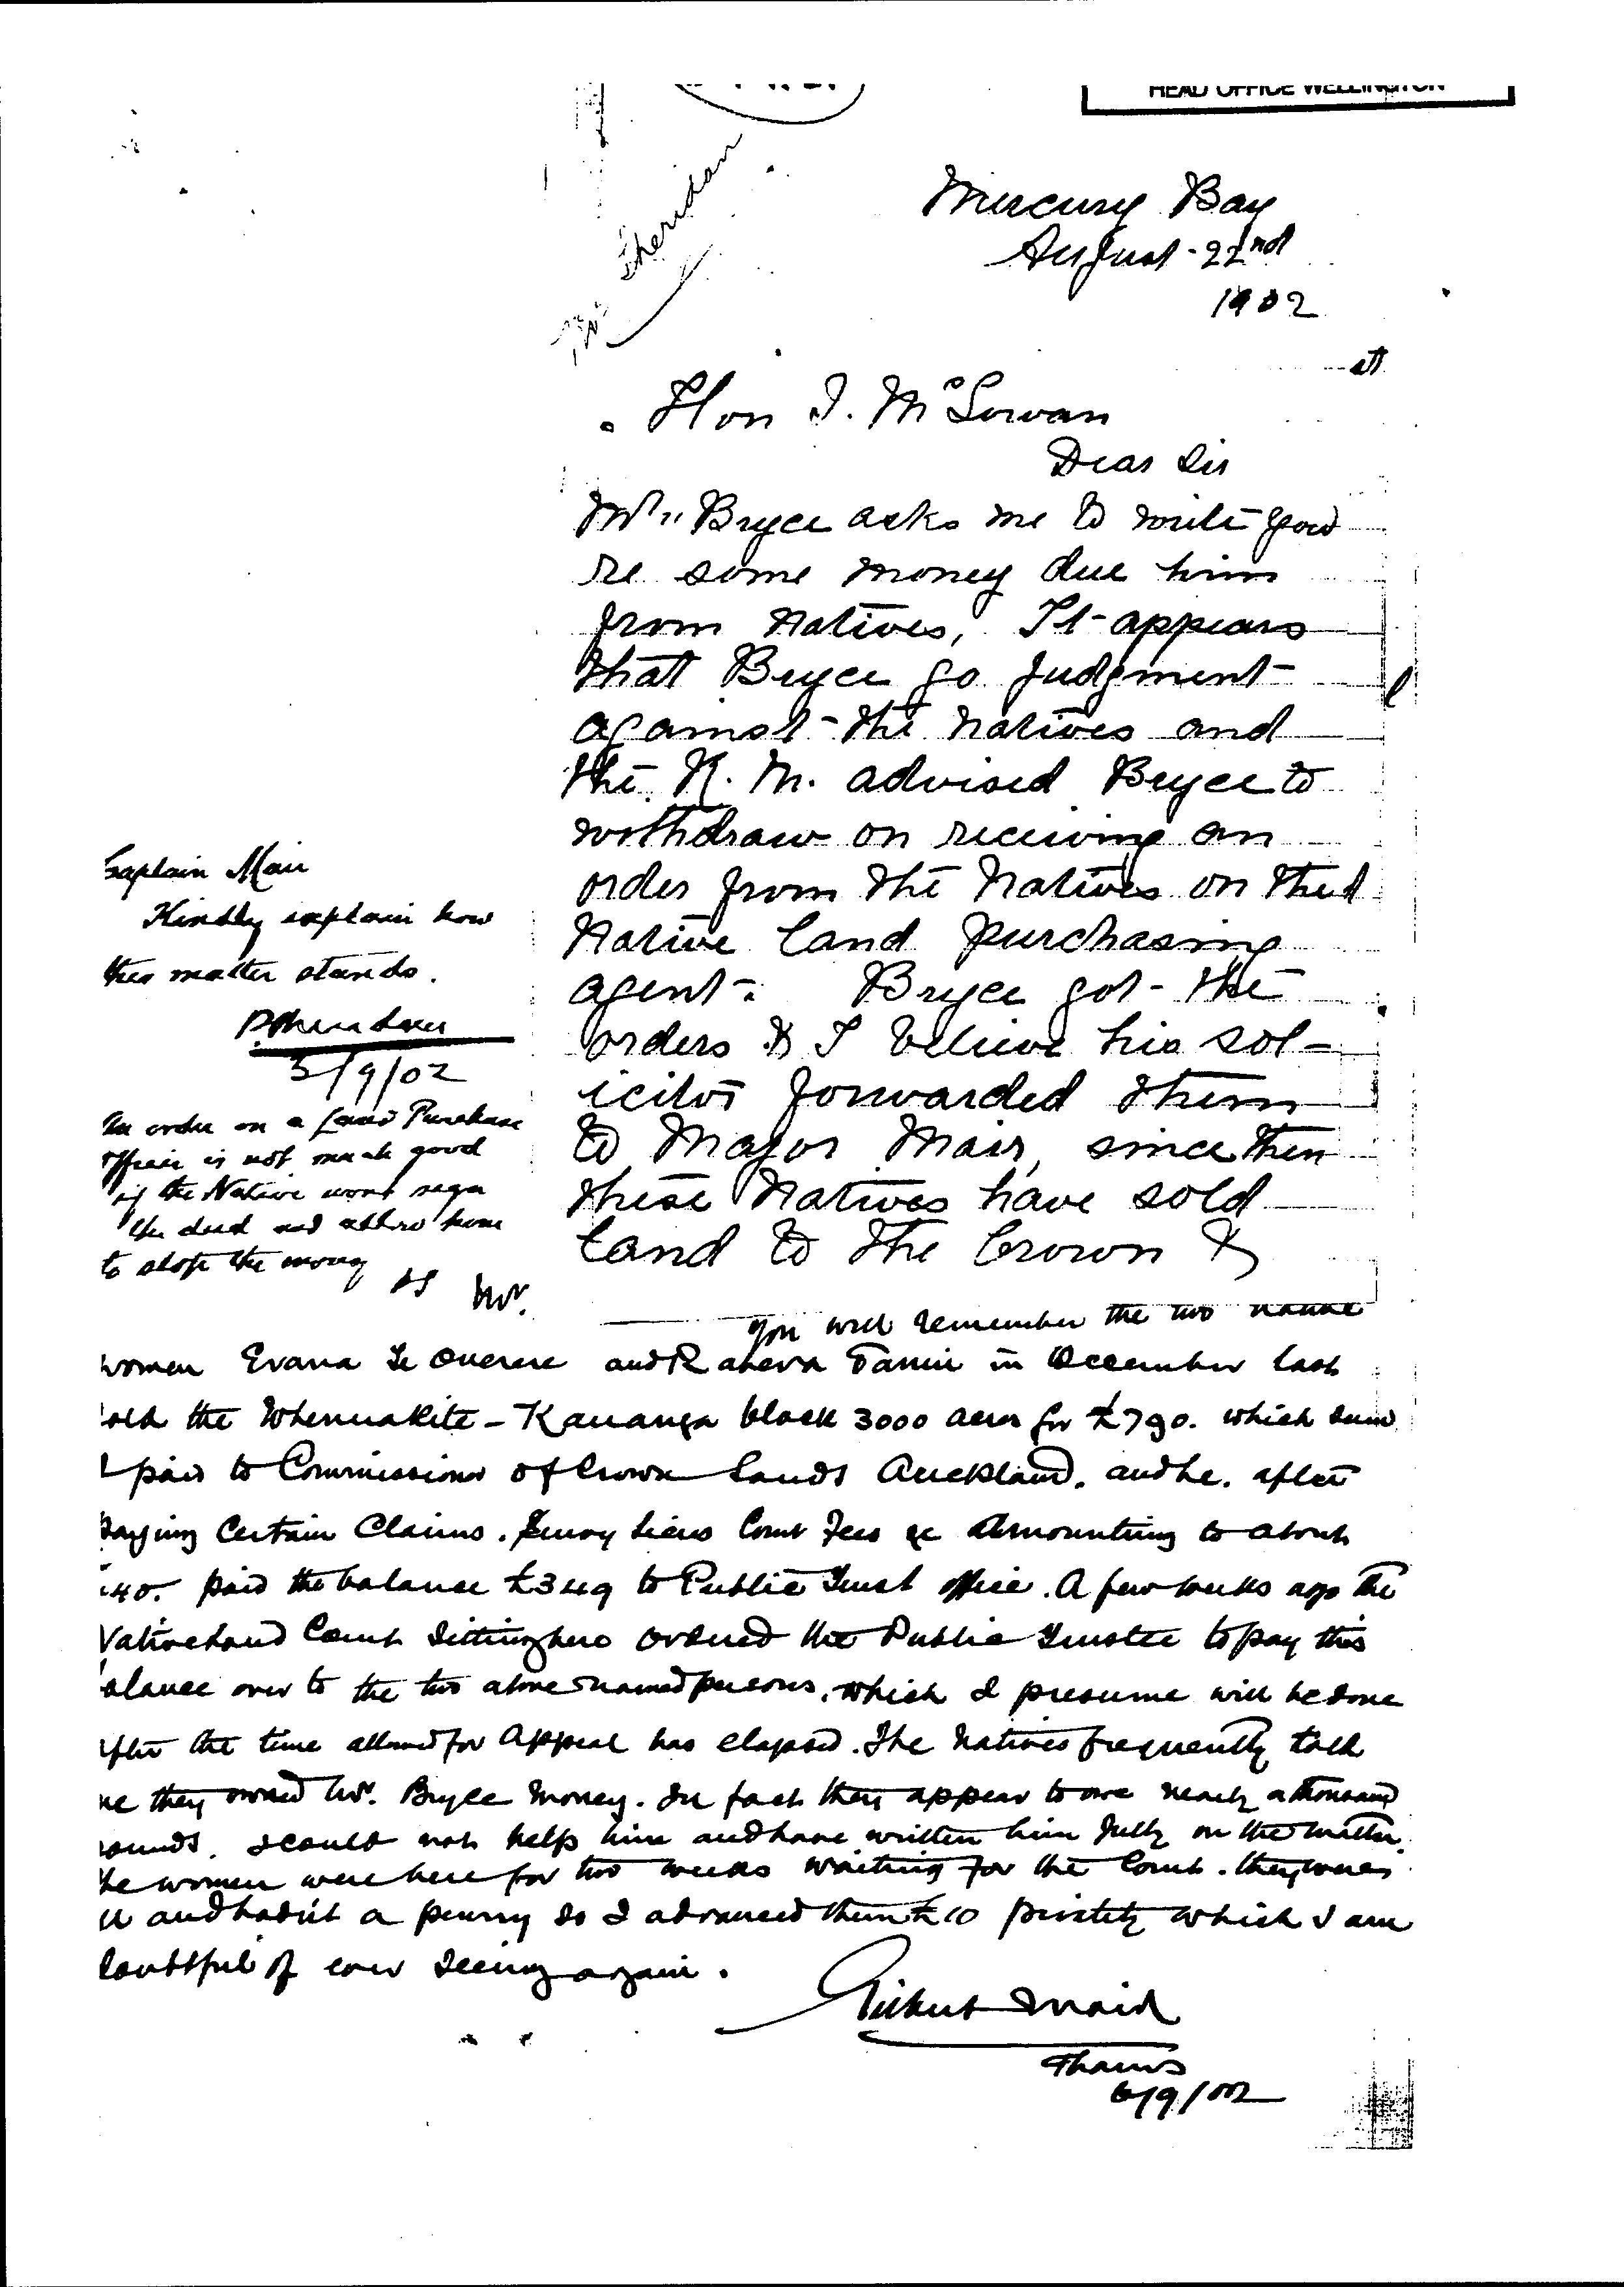 HEAD OFFICE WELLINGTON
Mr Sheridan
Mercury Bay
August 22nd
1902
Hon J. McGowan
Dear Sir
Mr Bryce asks me to write you
re some money due him
from Natives, It appears
that Bryce go judgment
against the natives and
the R. M. advised Bryce to
withdraw on receiving an
order from the Natives on the
Native Land purchasing
agent. Bryce got the
orders & I believe his sol-
icitor forwarded them
to Major Mair, since then
these Natives have sold
land to the Crown &
Captain Mair
Kindly explain how
this matter stands.
P Sheridan
5/9/02
An order on a Land Purchase
officer is not much good
if the Native wont sign
the deed and allow him
to stop the money
Mr.
You will remember the two native
women Evana Te and Rahera Tamu in December last
old the Whenuakite - Kauanga block 3000 acres for £790. which sum
I paid to Commissioner of Crown Lands Auckland. and he. after
paying Certain Claims. Survey Liens Court Fees &c Amounting to about
40. paid the balance £349 to Public Trust office. A few weeks ago the
Native Land Court Sitting here ordered the Public Trustee to pay this
alance over to the two above named persons, which I presume will be done
after the time allowed for Appeal has elapsed. The Natives frequently told
me they owed Mr. Bryce Money. In fact they appear to owe nearly a thousand
ounds. I could not help him and have written him fully on the matter.
he women were here for two weeks waiting for the Court. they were
ill and hadnt a penny so I advanced them £10 privately which I am
doubtful of ever seeing again.
Gilbert Mair
Thames
6/9/02